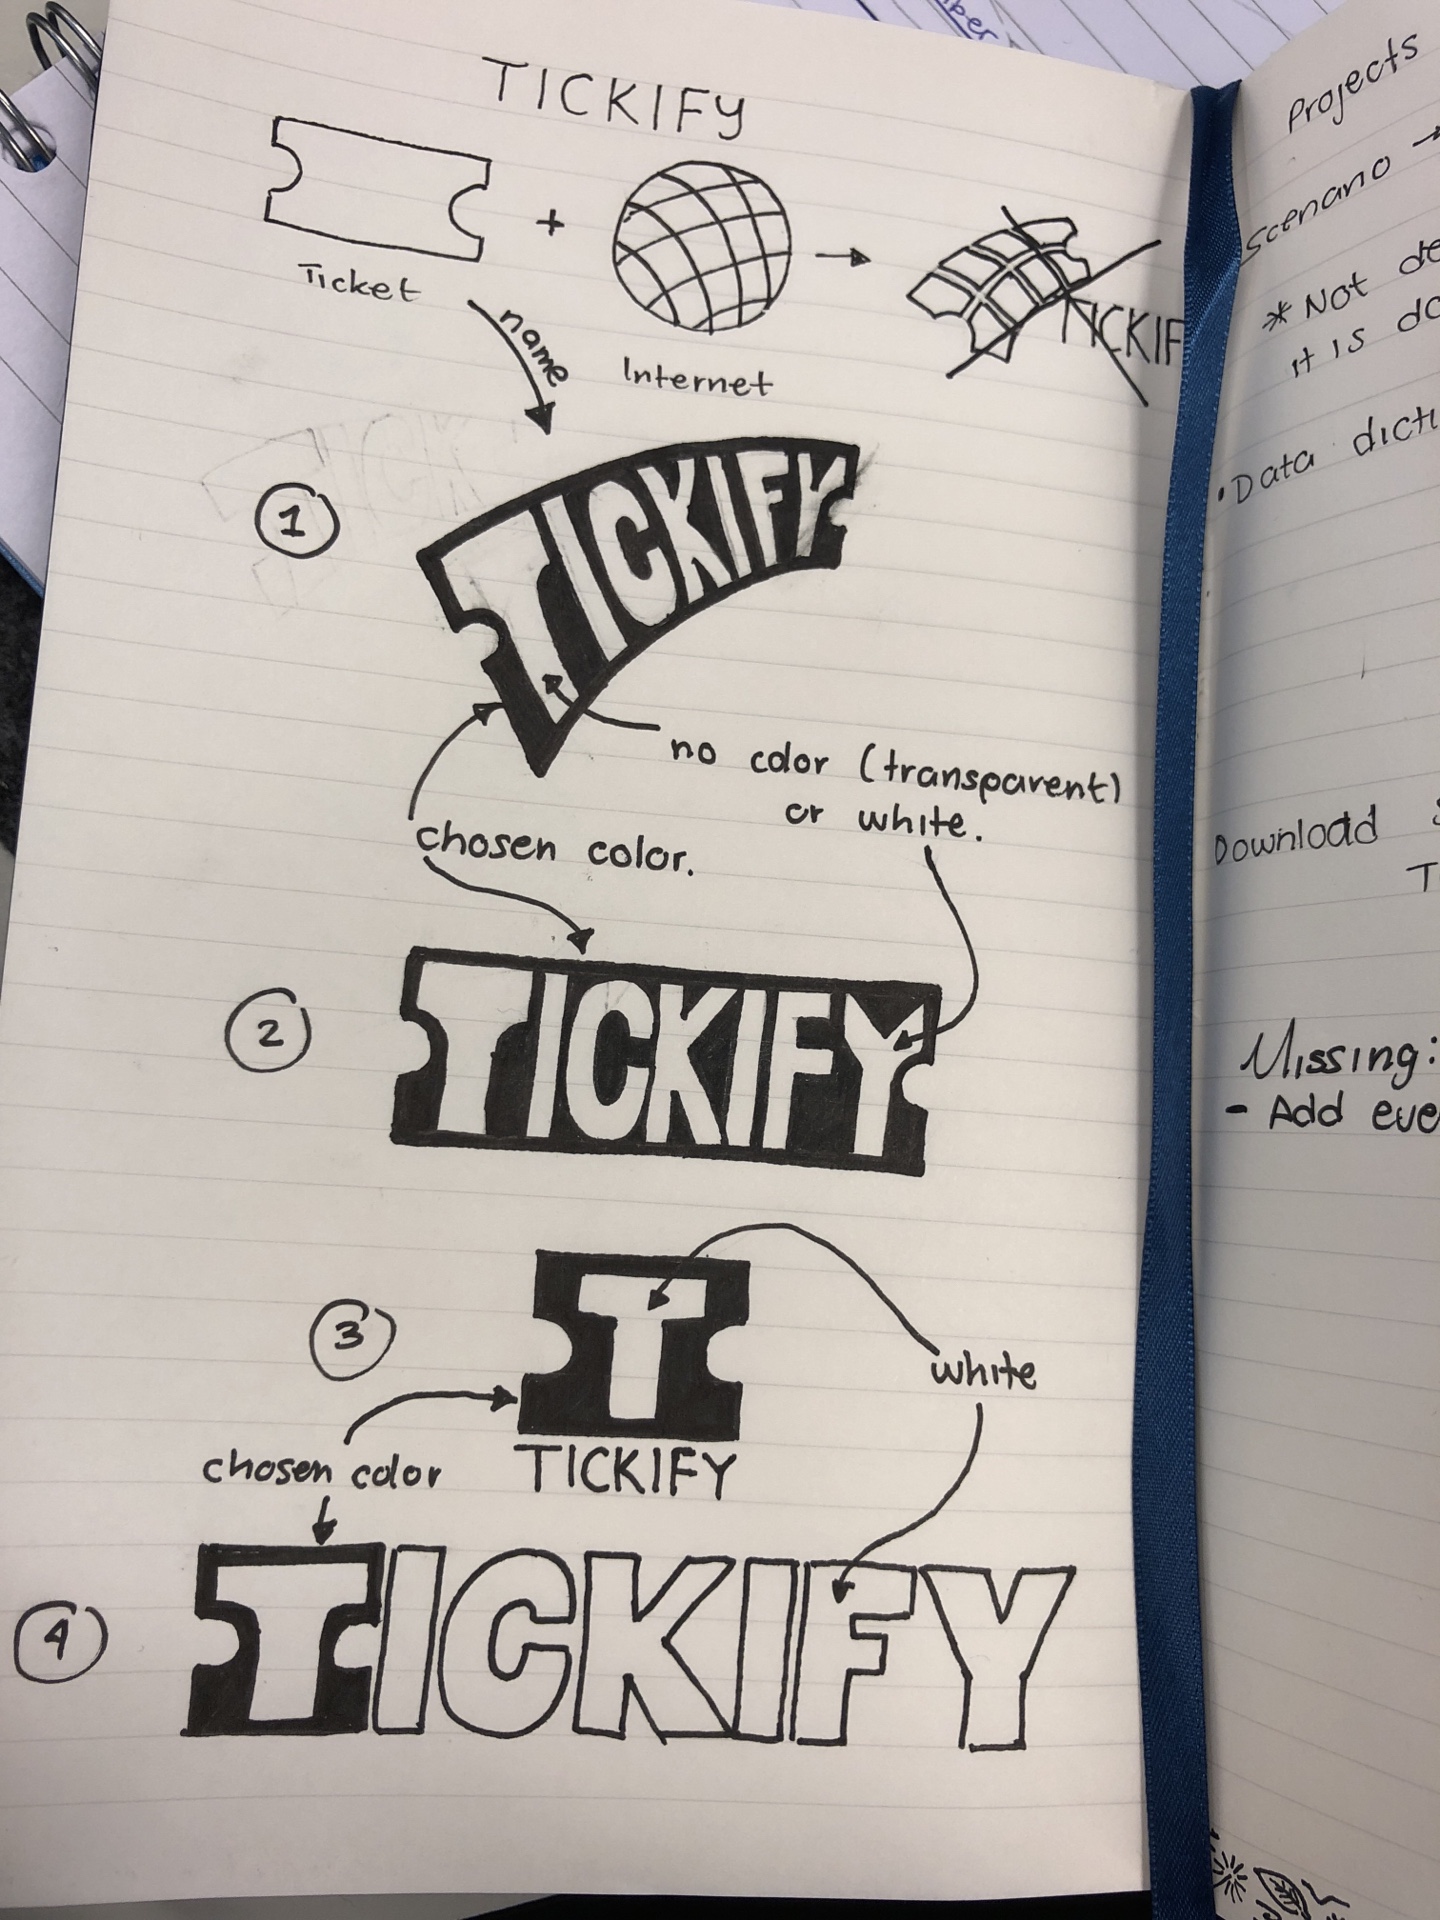 TICKIFY
+
Ticket
name
Internet
TICKIF
1
TICKIFY
no color (transparent)
or white.
chosen color.
2
TICKIFY
3
T
white
chosen color
TICKIFY
4
TICKIFY
Projects
Scenario →
* Not de
it is do
• Data dicti
Download
T
Missing:
- Add eve